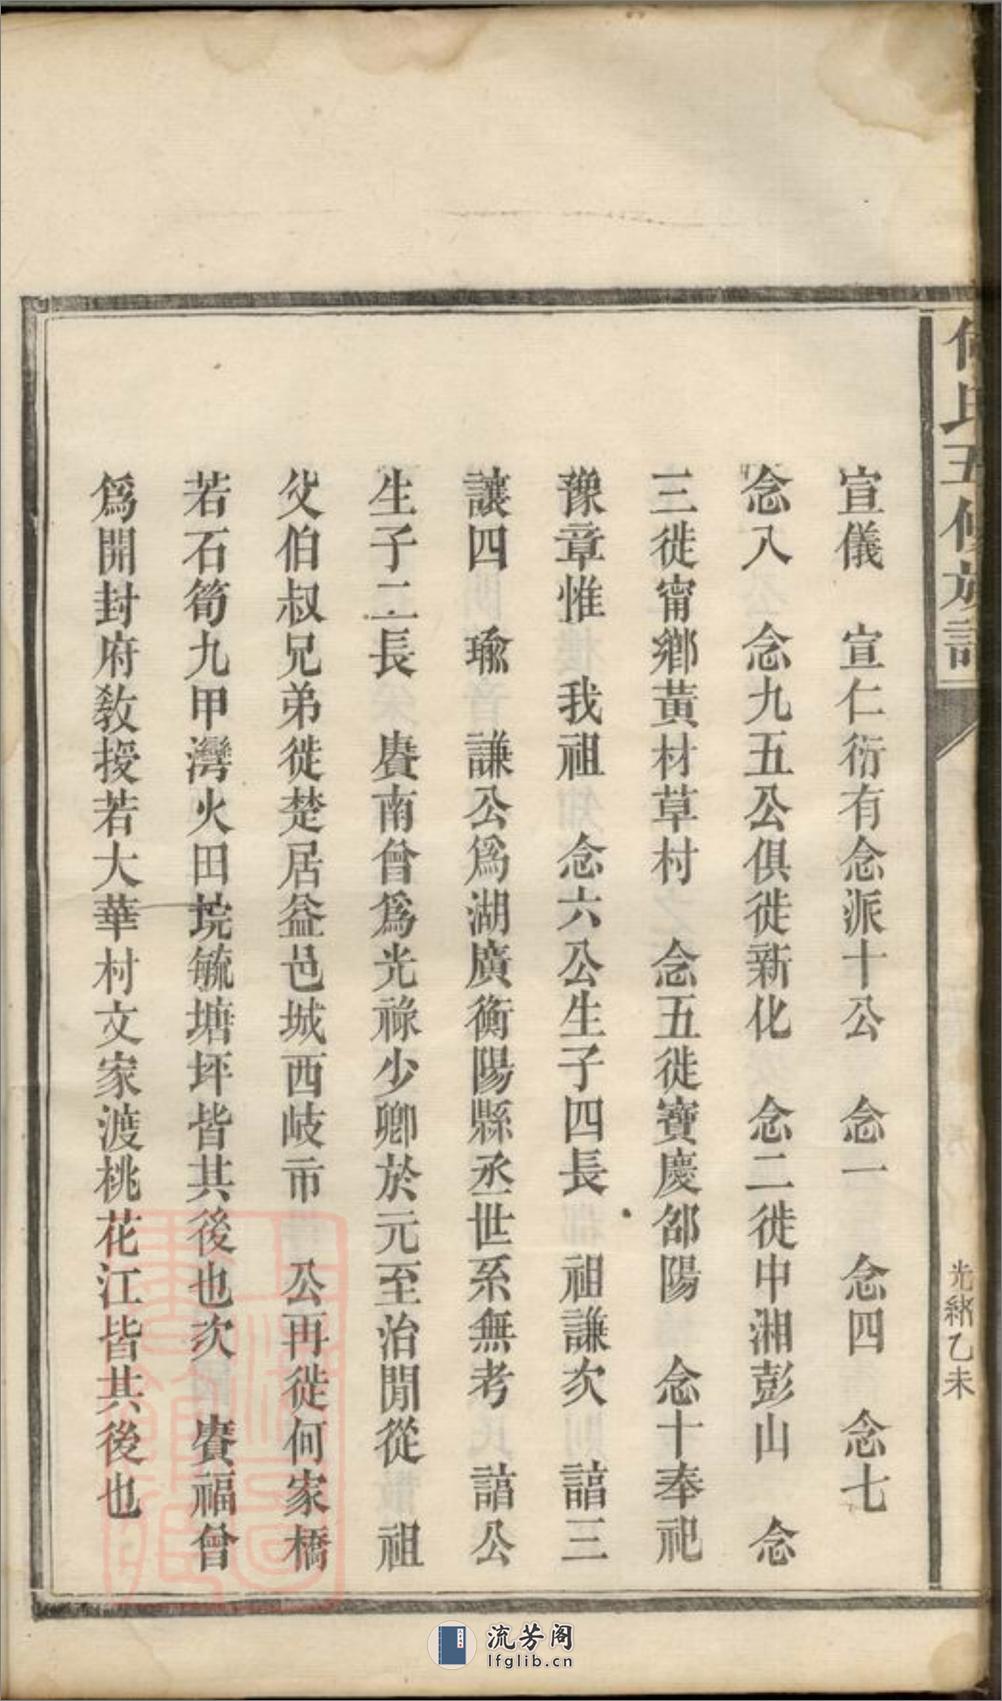 何氏五修族譜
光緒乙未
宣儀　宣仁衍有念派十公　念一　念四　念七
念八　念九五公俱徙新化　念二徙中湘彭山　念
三徙甯鄉黃材草村　念五徙寶慶邵陽　念十奉祀
豫章惟　我祖　念六公生子四長　祖謙次　諳三
讓四　瑜　謙公爲湖廣衡陽縣丞世系無考　諳公
生子二長　賡南曾爲光祿少卿於元至治閒從　祖
父伯叔兄弟徙楚居益邑城西岐市　公再徙何家橋
若石筍九甲灣火田垸毓塘坪皆其後也次　賡福曾
爲開封府敎授若大華村文家渡桃花江皆其後也
流芳阁
lfglib.cn